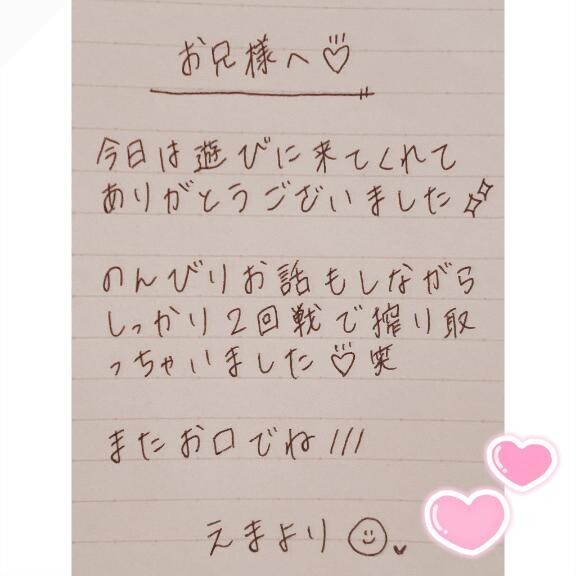 お兄様へ♡
今日は遊びに来てくれて
ありがとうございました✨
のんびりお話もしながら
しっかり2回戦で搾り取
っちゃいました♡笑
またお口でね///
えまより☺